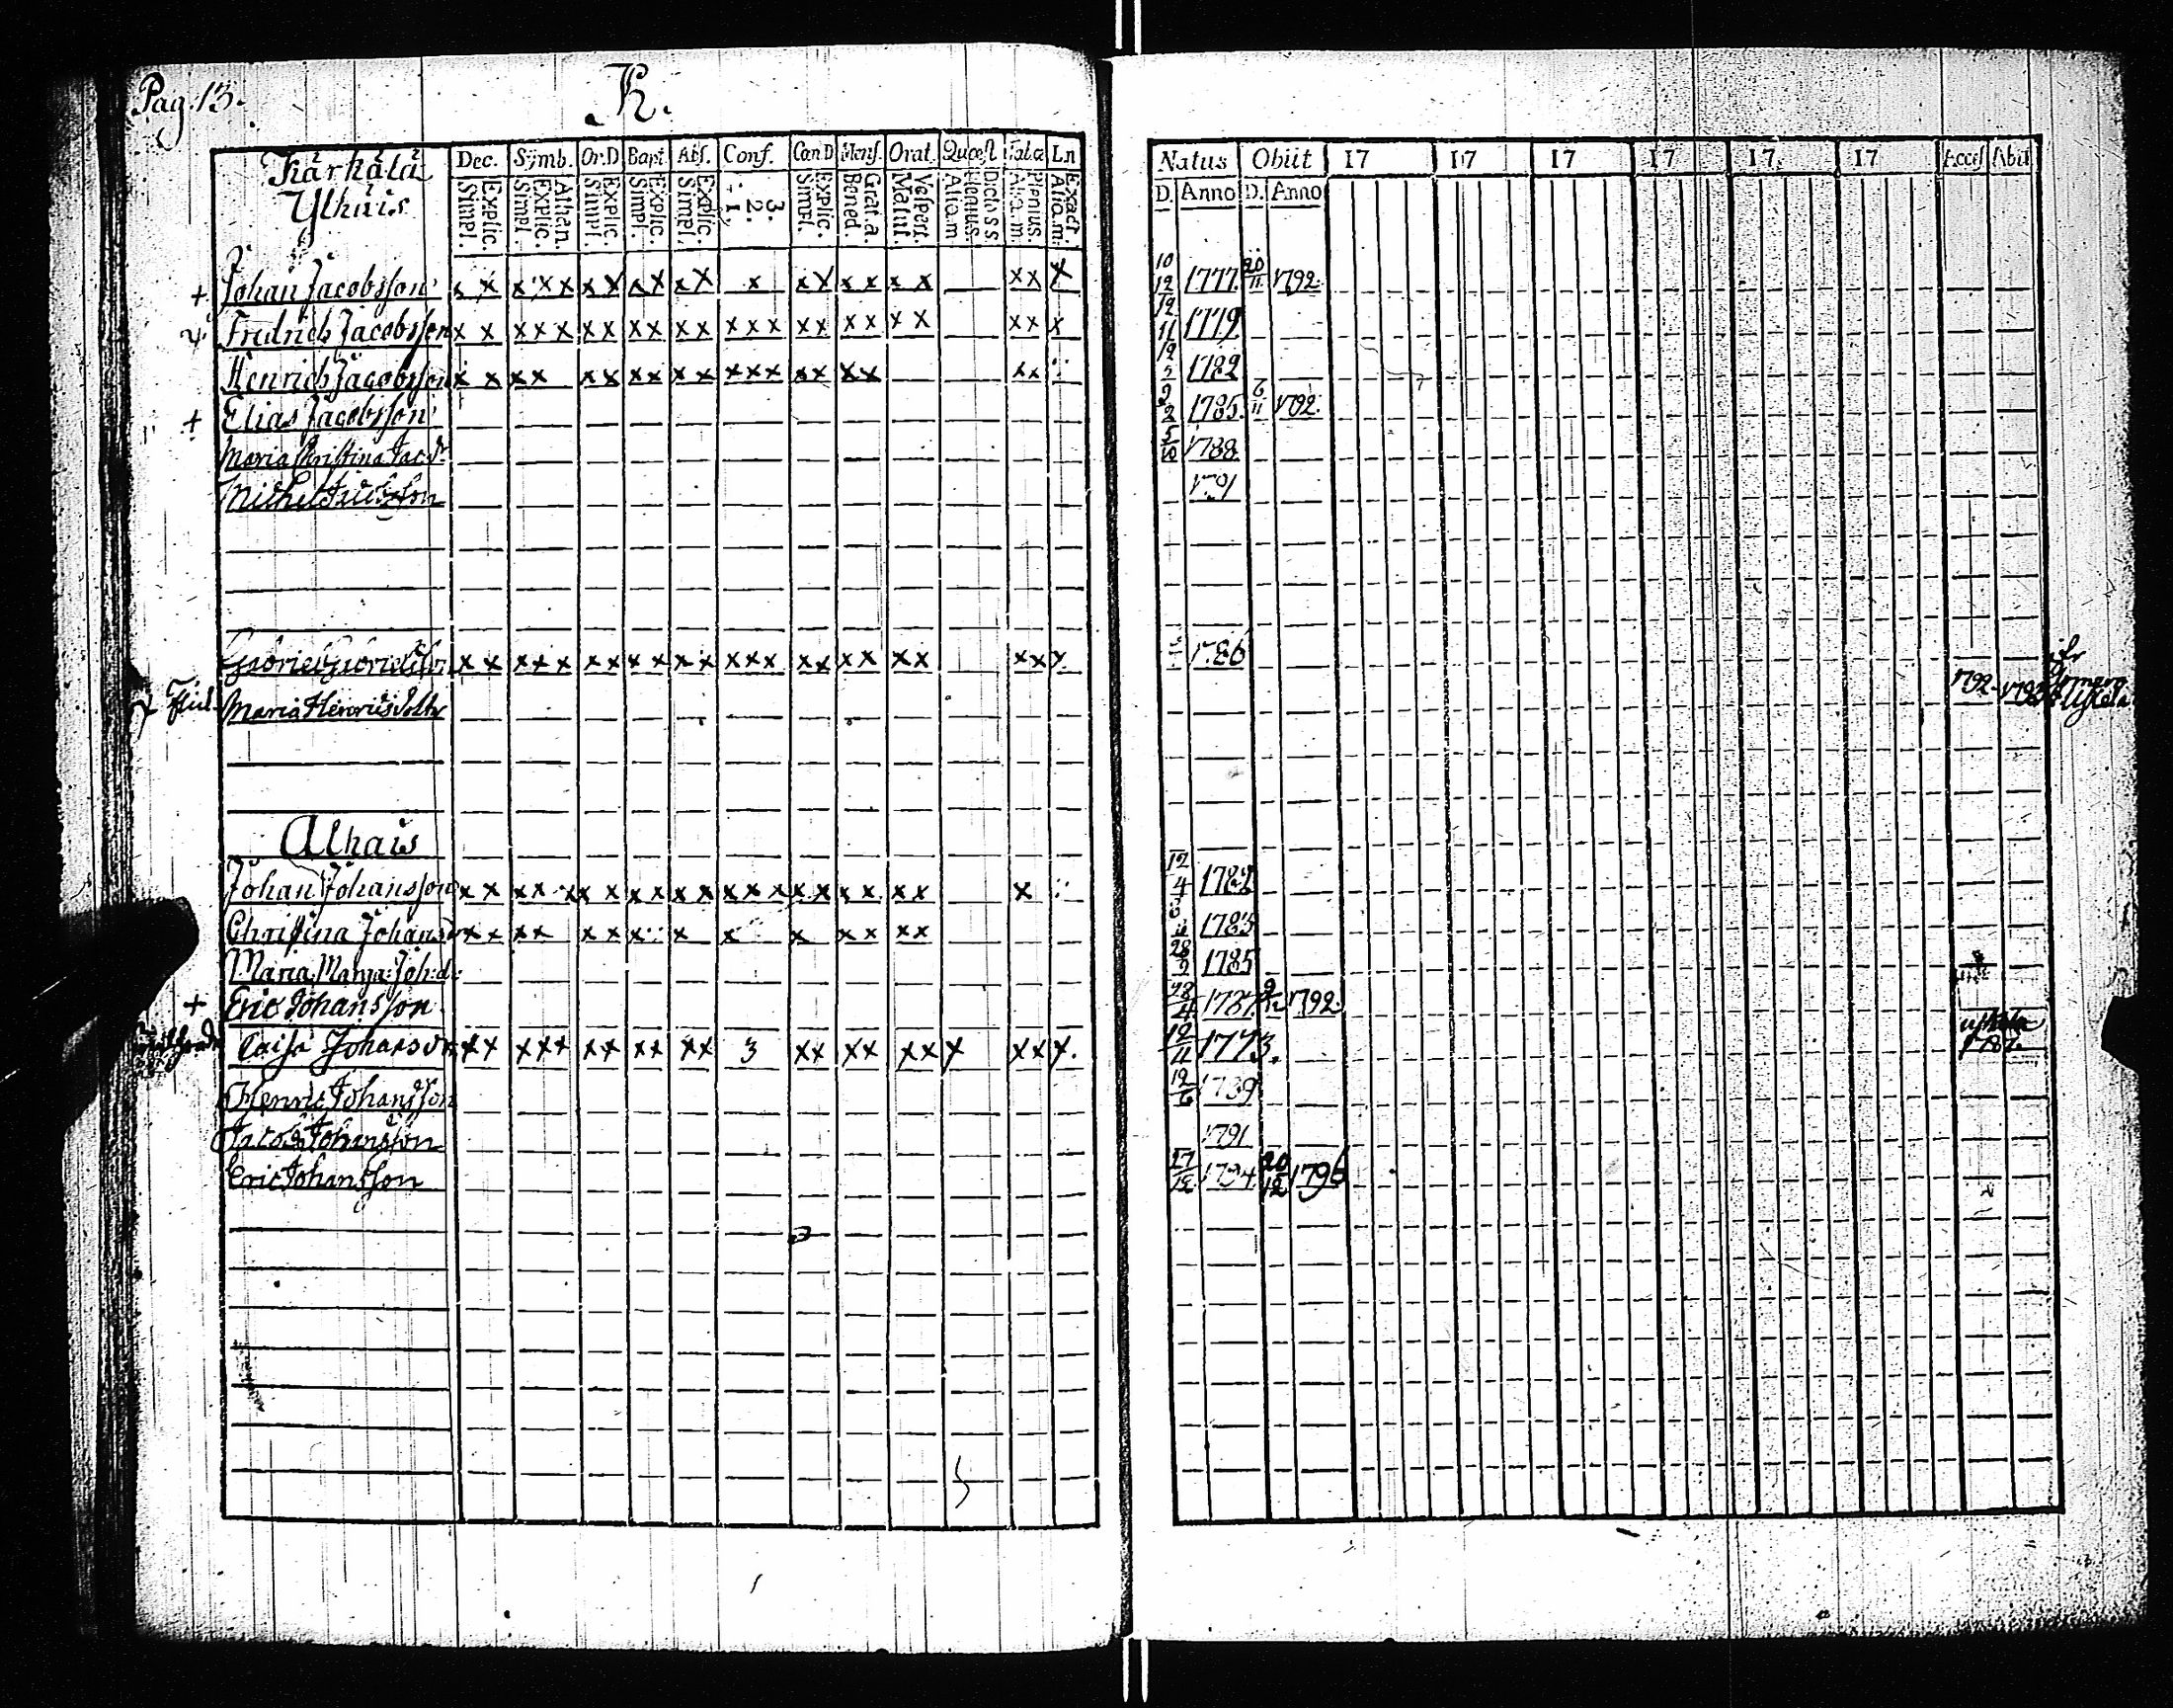 Pag. 13.
K.
Kärkälä
Ylhäis
Dec. Symb. Or.D Bapt. Abs. Conf. Cœn.D Mens. Orat. Quæst Tab.œ Ln
Explic. Simpl. Athan. Explic. Simpl. Explic. Simpl. Explic. Simpl. Explic. Simpl. 3. 2. 1. Explic. Simpl. Grat.a. Bened. Vespert. Matut. Dict.SS Plenius. Aliq.m Plenius. Aliq.m. Exact. Aliq.m.
Natus Obiit 17 17 17 17 17 17 Acces Abit
D. Anno D. Anno
+ Johan Jacobsson x x x x x x x x x x x x x x x x x x x x x x 10/12 1777. 20/11 1792.
Fredrich Jacobsson x x x x x x x x x x x x x x x x x x x x x x x 12/11 1779.
Henrich Jacobsson x x x x x x x x x x x x x x x x x x x 1782
+ Elias Jacobsson 2/2 1785. 6/11 1792.
Maria Christina Jac.dr 5/10 1788
Michel 1791
Gabriel Gabrielsson x x x x x x x x x x x x x x x x x x x x x x x 1786
Maria Henricsdotter 1792
Alhais
Johan Johansson x x x x x x x x x x x x x x x x x x x x x x 12/4 1782
Christina Johansd x x x x x x x x x x x x x x x 1783
Maria Marga: Joh:d: 28/9 1785
+ Eric Johansson 28/4 1787. 9/12 1792.
Caisa Johansdr x x x x x x x x x x x 3 x x x x x x x x x x. 12/11 1773.
Henric Johansson 12/6 1789
Jacob Johansson 1791
Eric Johansson 27/12 1794. 20/12 1796